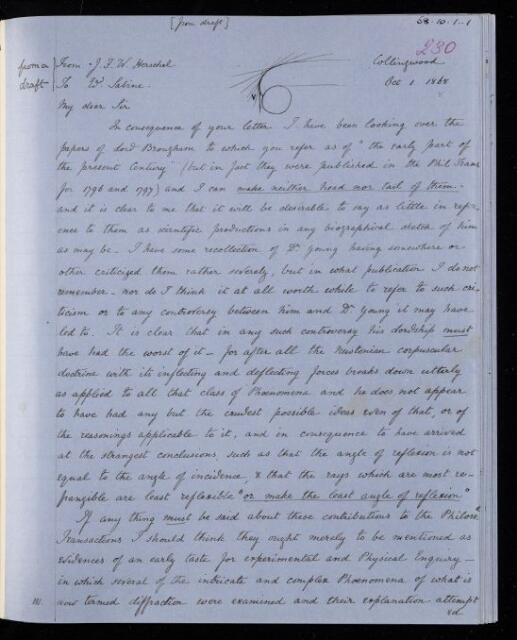 [from draft]
68.10.1-1
230
from a draft
From J. F. W. Herschel
Collingwood
To Ed. Sabine.
Oct 1 1868
My dear Sir
In consequence of your letter I have been looking over the
papers of Lord Brougham to which you refer as of "the early part of
the present Century" (but in fact they were published in the Phil Trans
for 1796 and 1797) and I can make neither head nor tail of them -
and it is clear to me that it will be desirable to say as little in refe-
rence to them as scientific productions in any biographical sketch of him
as may be. I have some recollection of Dr Young having somewhere or
other criticized them rather severely, but in what publication I do not
remember - nor do I think it at all worth while to refer to such cri-
ticism or to any controversy between him and Dr Young it may have
led to. It is clear that in any such controversy his Lordship must
have had the worst of it - for after all the Newtonian corpuscular
doctrine with its inflecting and deflecting forces breaks down utterly
as applied to all that class of Phænomena and he does not appear
to have had any but the crudest possible ideas even of that, or of
the reasonings applicable to it, and in consequence to have arrived
at the strangest conclusions, such as that the angle of reflexion is not
equal to the angle of incidence, & that the rays which are most re-
frangible are least reflexible "or make the least angle of reflexion"
If any thing must be said about these contributions to the Philos.
Transactions I should think they ought merely to be mentioned as
evidences of an early taste for experimental and Physical Enquiry -
in which several of the intricate and complex Phænomena of what is
now termed diffraction were examined and their explanation attempt
ed